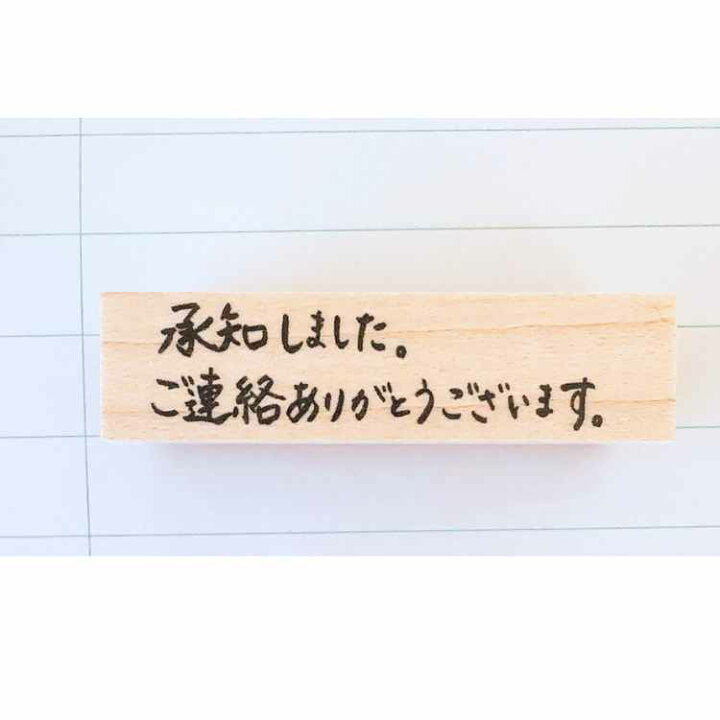 承知しました。
ご連絡ありがとうございます。